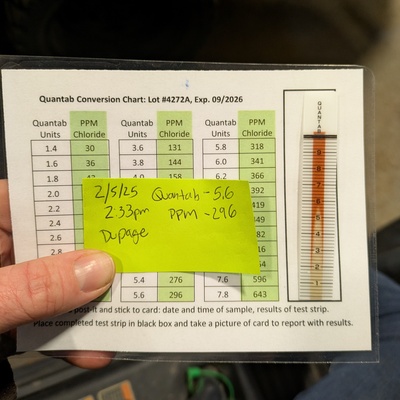 Quantab Conversion Chart: Lot #4272A, Exp. 09/2026
Quantab Units PPM Chloride Quantab Units PPM Chloride Quantab Units PPM Chloride
1.4 30 3.6 131 5.8 318
1.6 36 3.8 144 6.0 341
1.8 4.0 158 6.2 366
2.0 392
2.2 419
2.4
2.6
2.8
5.4 276 7.6 596
5.6 296 7.8 643
2/5/25 Quantab - 5.6
2:33pm PPM - 296
Dupage
post-it and stick to card: date and time of sample, results of test strip.
Place completed test strip in black box and take a picture of card to report with results.
QUANTAB
9
8
7
6
5
4
3
2
1